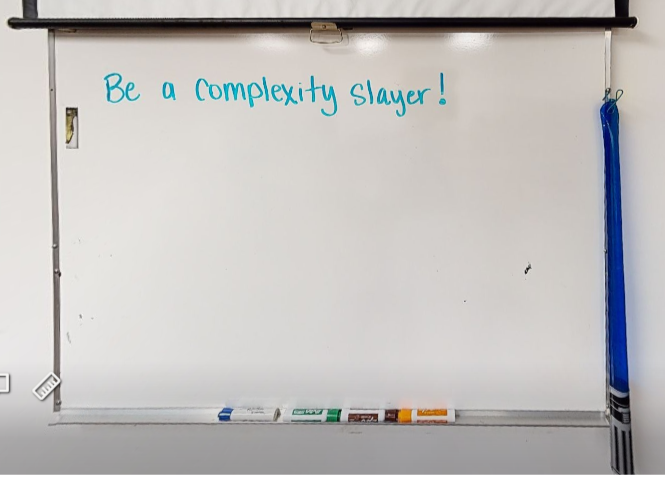 Be a complexity slayer!